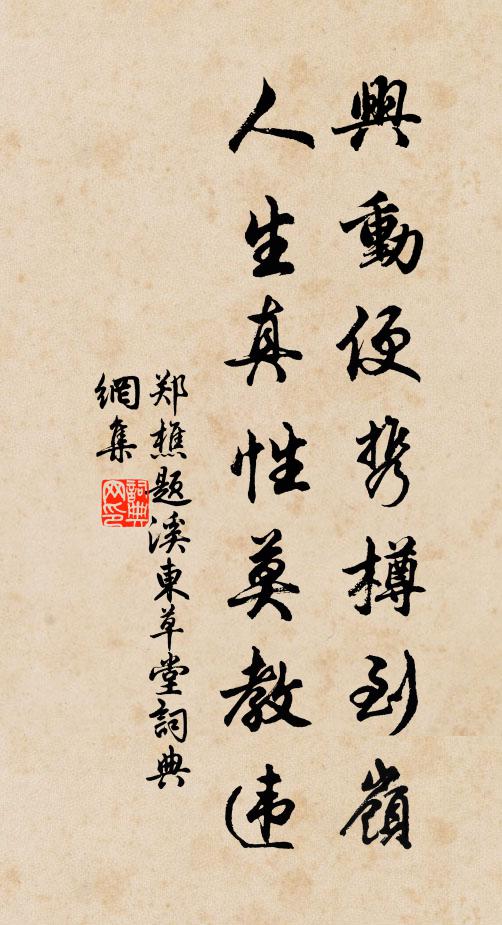 興動便携樽到嶺
人生真性莫教违
郑樵题溪東草堂詞典
網集
詞典
网印